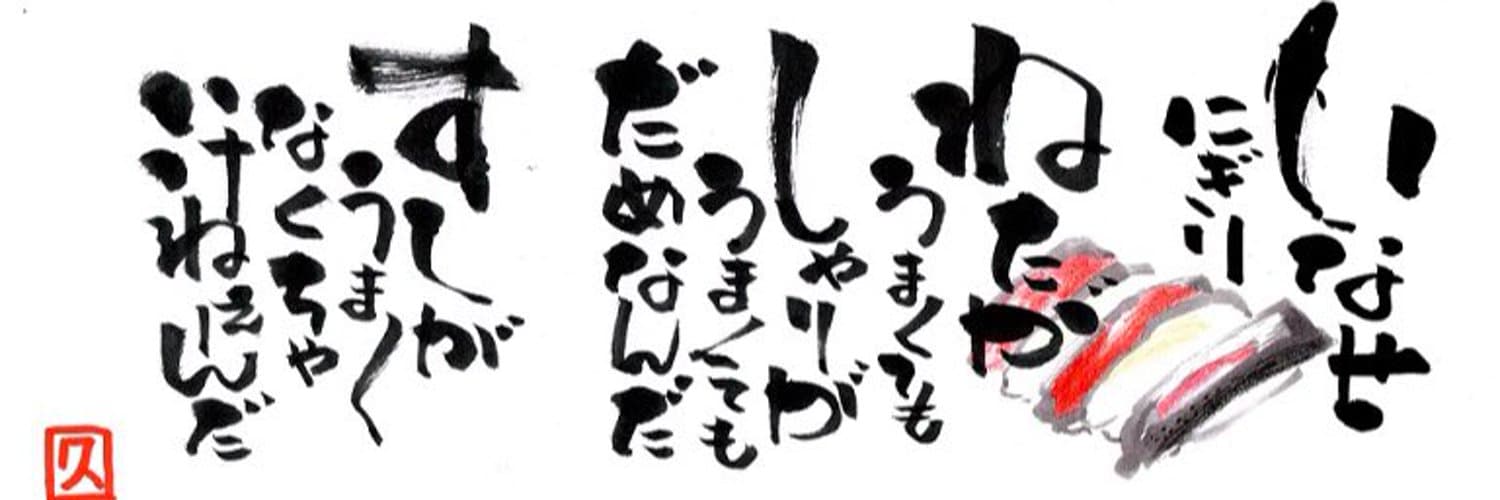 いなせ
にぎり
ねたが
うまくても
しゃりが
うまくても
だめなんだ
すしが
うまく
なくちゃ
いけねぇんだ
久